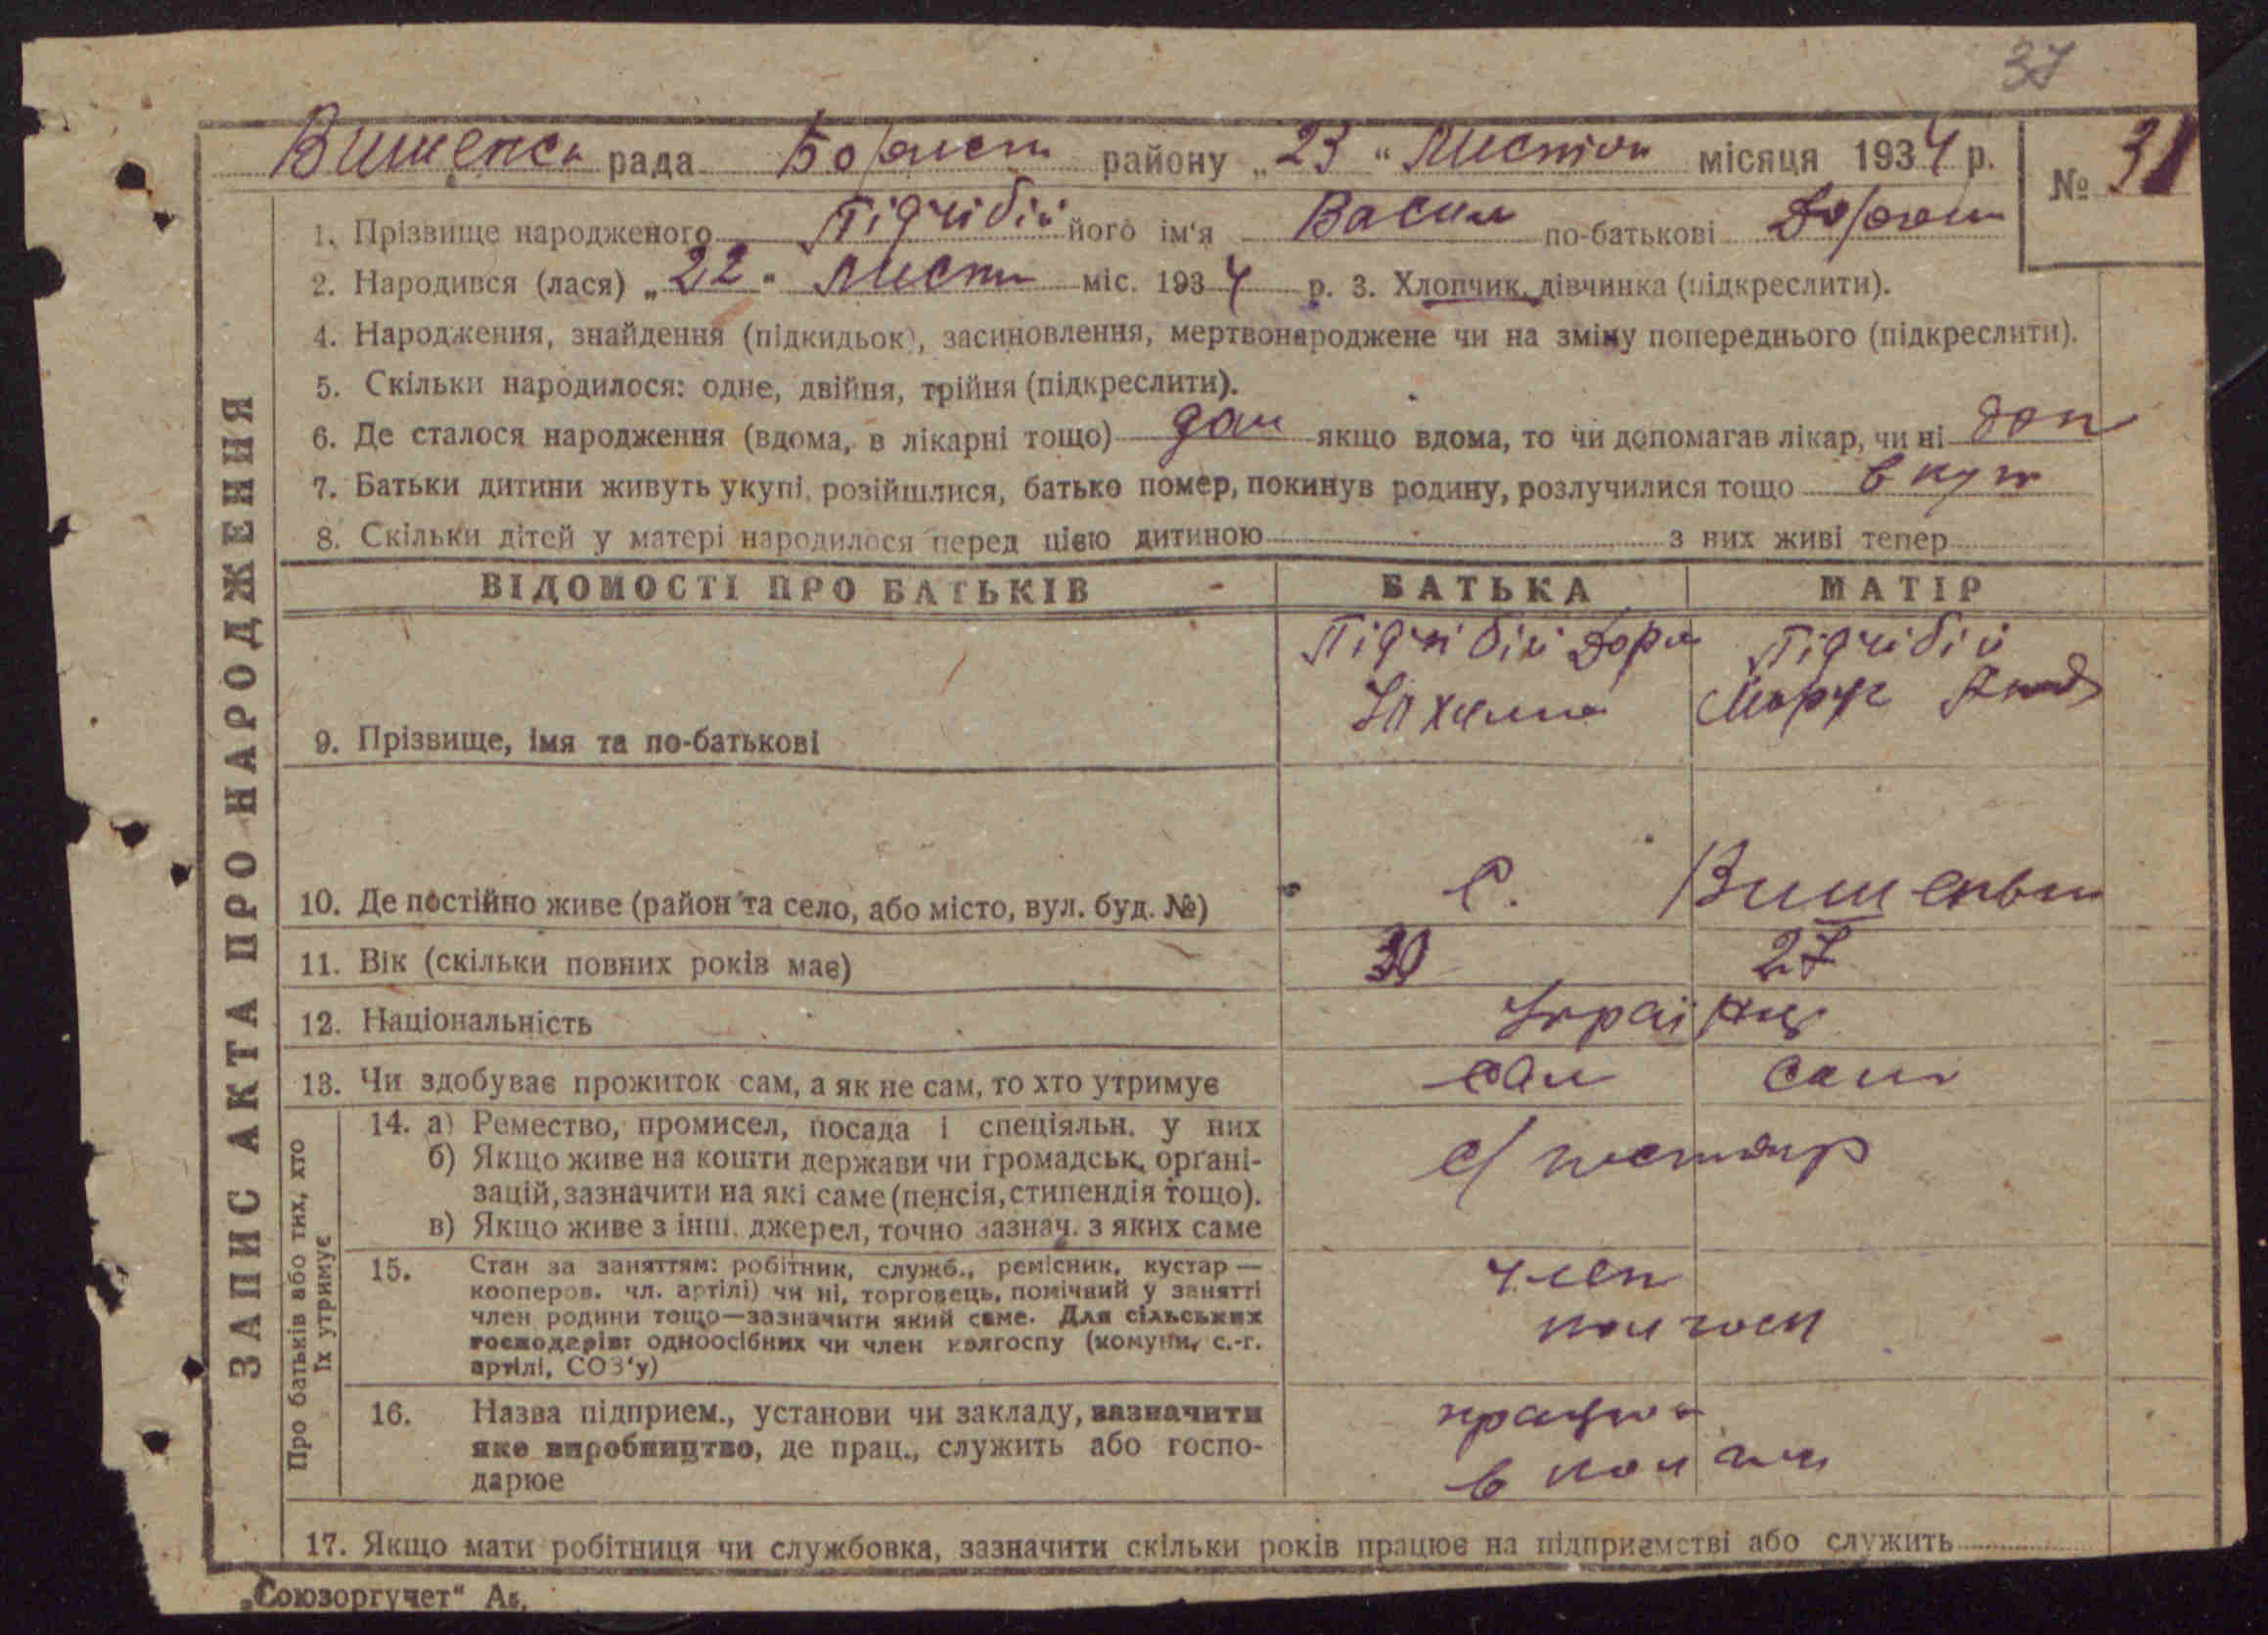 37
Вишенсь рада район району „23“ Листоп місяця 1934 р. № 31
1. Прізвище народженого Підгібій його ім'я Васил по-батькові
2. Народився (лася) „22“ Лист міс. 1934 р. 3. Хлопчик, дівчинка (підкреслити).
4. Народження, знайдення (підкидьок), засиновлення, мертвонароджене чи на зміну попереднього (підкреслити).
5. Скільки народилося: одне, двійня, трійня (підкреслити).
6. Де сталося народження (вдома, в лікарні тощо) дом якщо вдома, то чи допомагав лікар, чи ні доп
7. Батьки дитини живуть укупі, розійшлися, батько помер, покинув родину, розлучилися тощо вкуп
8. Скільки дітей у матері народилося перед цією дитиною з них живі тепер
ЗАПИС АКТА ПРО НАРОДЖЕННЯ
ВІДОМОСТІ ПРО БАТЬКІВ БАТЬКА МАТІР
Підгібій Підгібій
9. Прізвище, імя та по-батькові
10. Де постійно живе (район та село, або місто, вул. буд. №) С. Вишеньки
11. Вік (скільки повних років має) 30 27
12. Національність Українц
13. Чи здобуває прожиток сам, а як не сам, то хто утримує сам сам
Про батьків або тих, хто їх утримує
14. а) Ремество, промисел, посада і спеціяльн. у них
б) Якщо живе на кошти держави чи громадськ. орґані-
зацій, зазначити на які саме (пенсія, стипендія тощо).
в) Якщо живе з інш. джерел, точно зазнач. з яких саме
15. Стан за заняттям: робітник, служб., ремісник, кустар —
кооперов. чл. артілі) чи ні, торговець, помічний у занятті
член родини тощо—зазначити який саме. Для сільських
господарів: одноосібних чи член колгоспу (комуни, с.-г.
артілі, СОЗ'у)
член
колгосп
16. Назва підприєм., установи чи закладу, зазначити
яке виробництво, де прац., служить або госпо-
дарює
працює
в колгосп
17. Якщо мати робітниця чи службовка, зазначити скільки років працює на підприємстві або служить
„Союзоргучет“ А5.